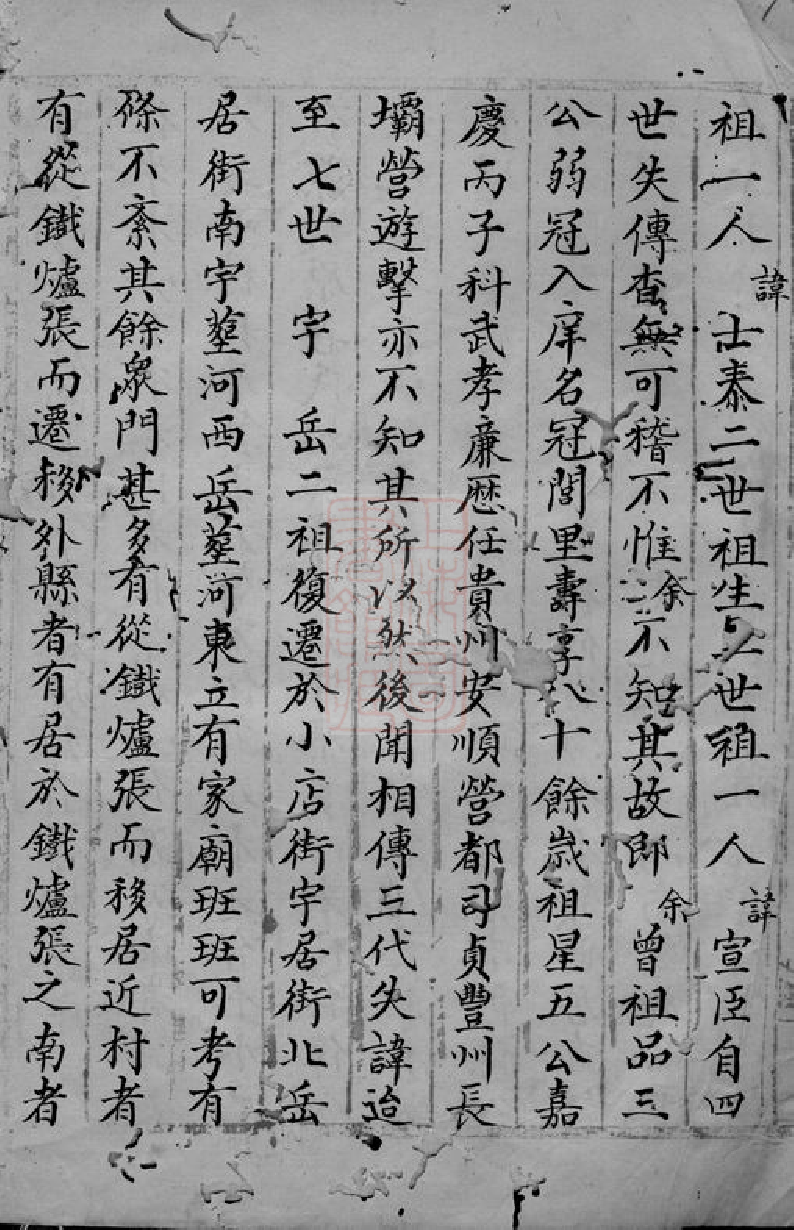 祖一人諱士泰二世祖生三世祖一人諱宣臣自四
世失傳查無可稽不惟余不知其故即余曾祖品三
公弱冠入庠名冠閭里壽享八十餘歲祖星五公嘉
慶丙子科武孝廉歷任貴州安順營都司貞豐州長
壩營遊擊亦不知其所以然後聞相傳三代失諱迨
至七世宇岳二祖復遷於小店街宇居街北岳
居街南宇塋河西岳塋河東立有家廟班班可考有
條不紊其餘眾門甚多有從鐵爐張而移居近村者
有從鐵爐張而遷移外縣者有居於鐵爐張之南者